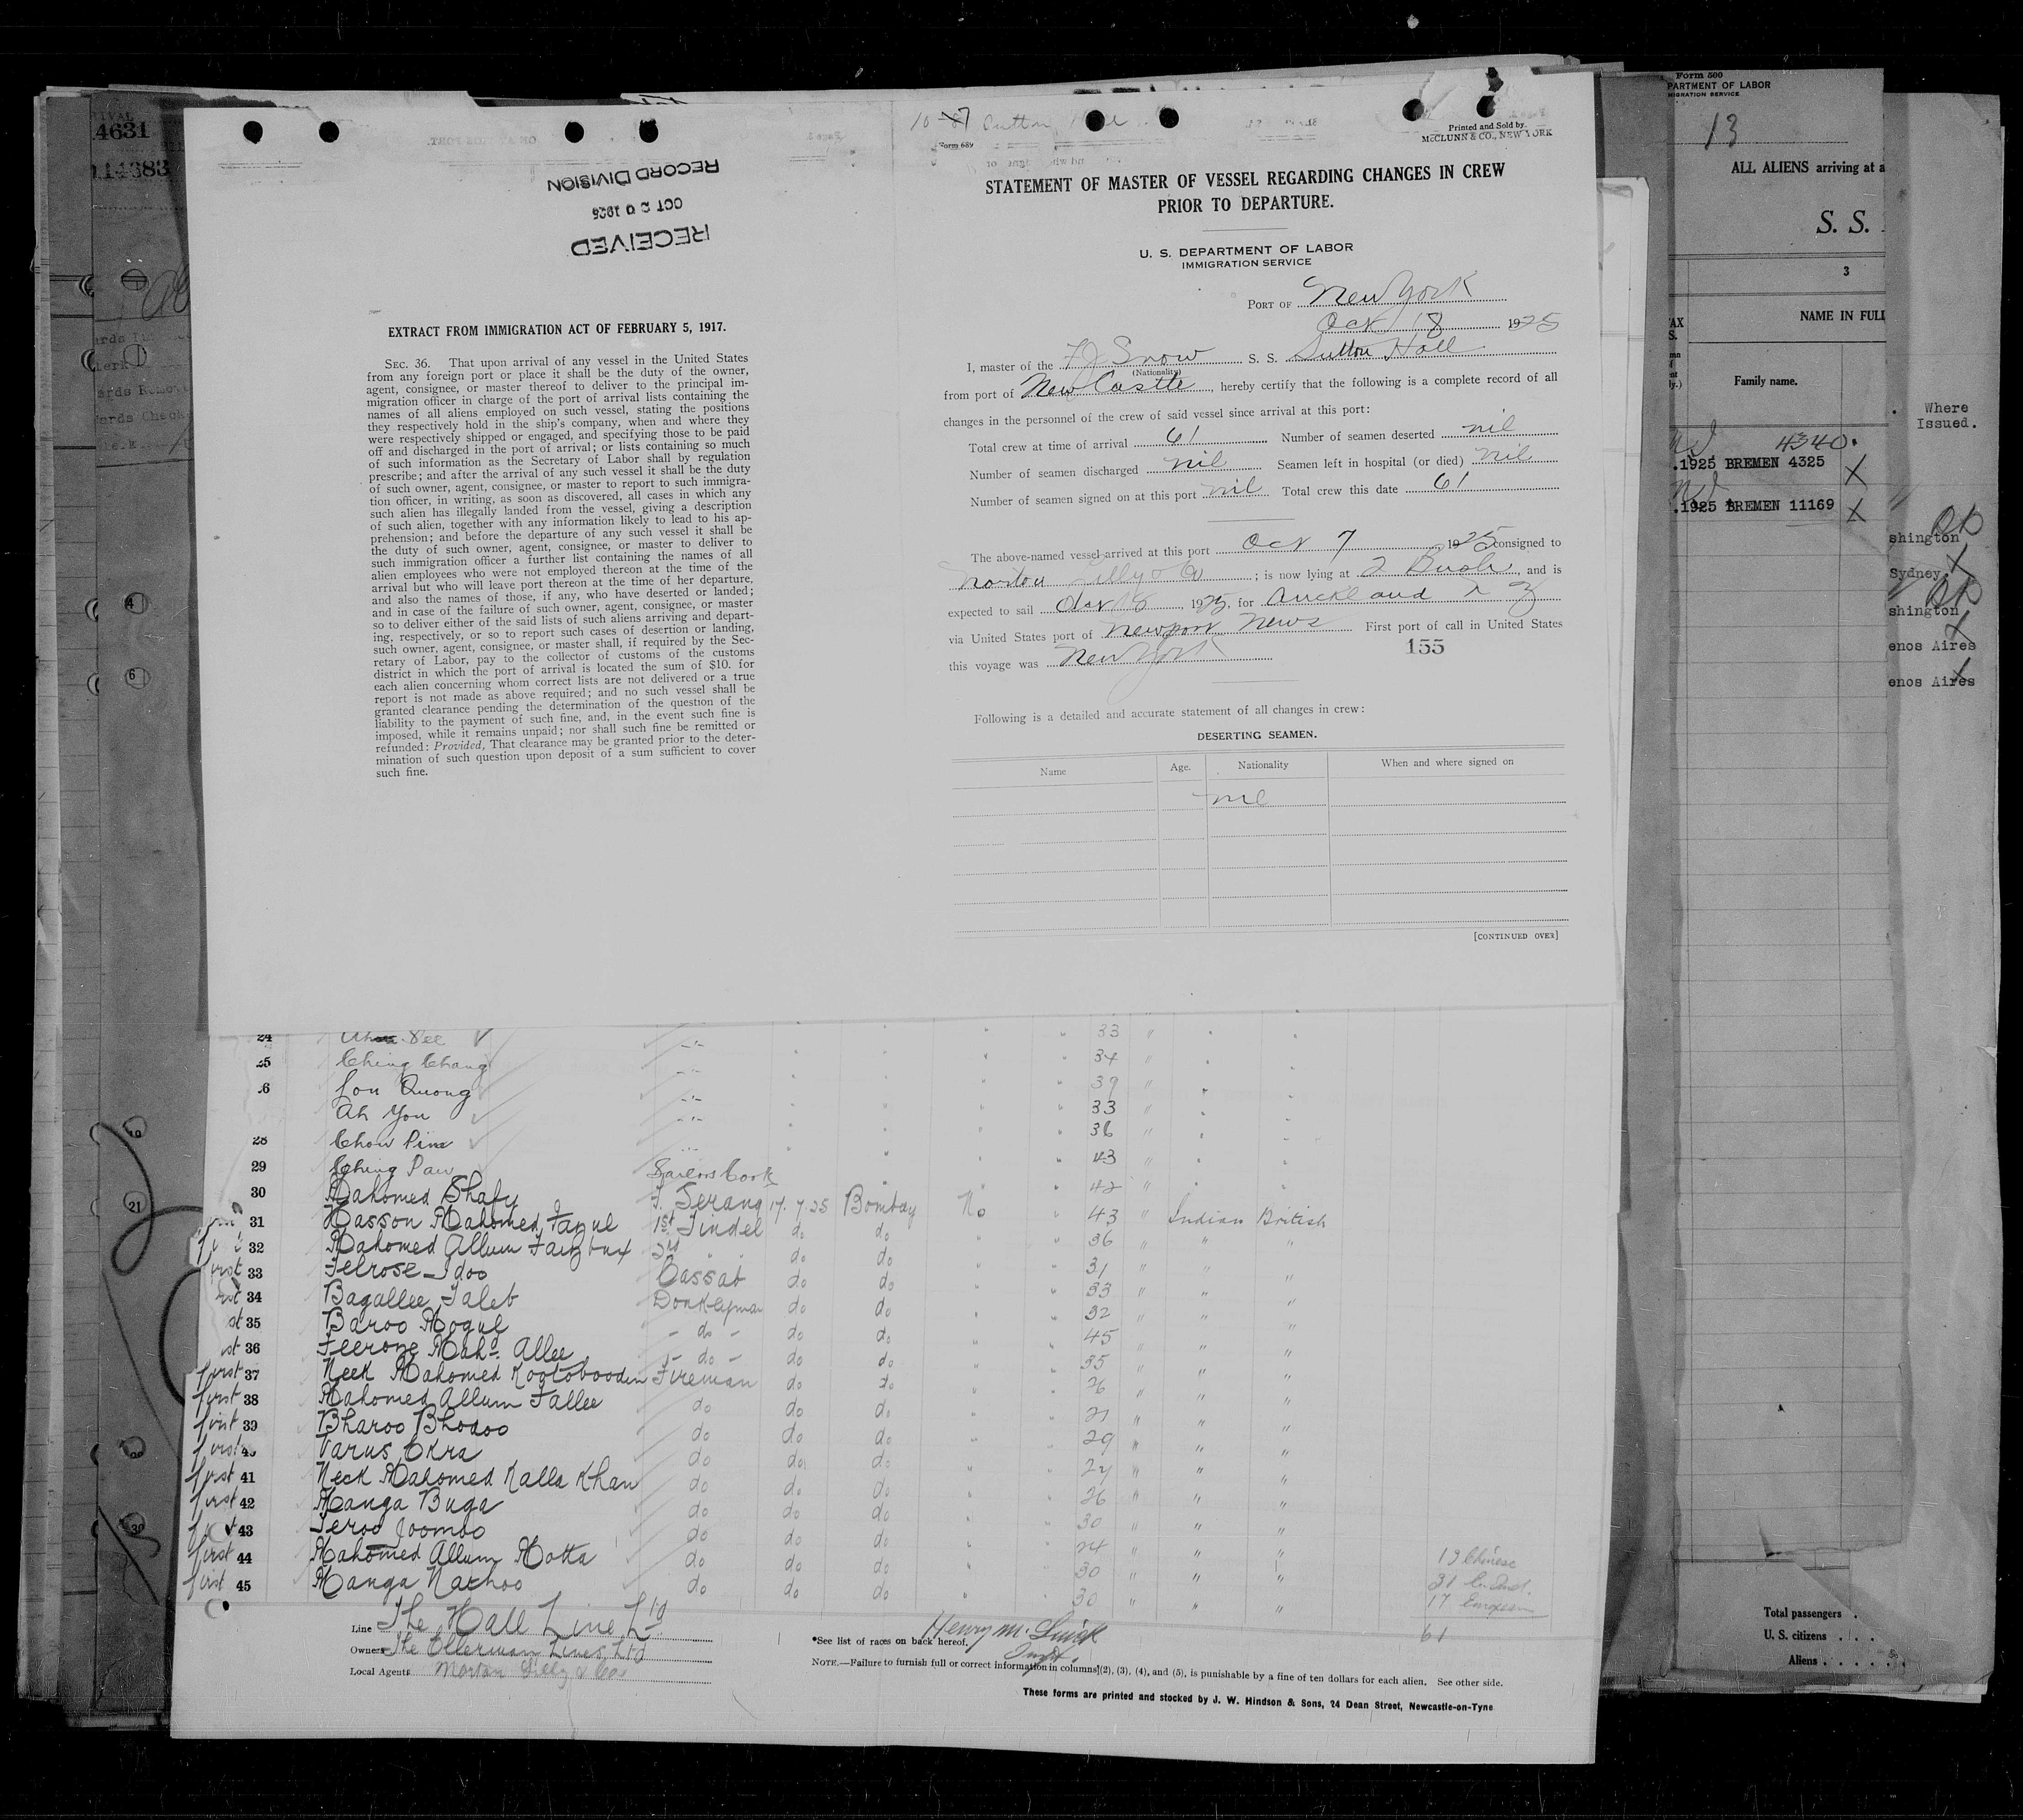 RECORD DIVISION
OCT 20 1925
RECEIVED
EXTRACT FROM IMMIGRATION ACT OF FEBRUARY 5, 1917.
SEC. 36. That upon arrival of any vessel in the United States
from any foreign port or place it shall be the duty of the owner,
agent, consignee, or master thereof to deliver to the principal im-
migration officer in charge of the port of arrival lists containing the
names of all aliens employed on such vessel, stating the positions
they respectively hold in the ship's company, when and where they
were respectively shipped or engaged, and specifying those to be paid
off and discharged in the port of arrival; or lists containing so much
of such information as the Secretary of Labor shall by regulation
prescribe; and after the arrival of any such vessel it shall be the duty
of such owner, agent, consignee, or master to report to such immigra-
tion officer, in writing, as soon as discovered, all cases in which any
such alien has illegally landed from the vessel, giving a description
of such alien, together with any information likely to lead to his ap-
prehension; and before the departure of any such vessel it shall be
the duty of such owner, agent, consignee, or master to deliver to
such immigration officer a further list containing the names of all
alien employees who were not employed thereon at the time of the
arrival but who will leave port thereon at the time of her departure,
and also the names of those, if any, who have deserted or landed;
and in case of the failure of such owner, agent, consignee, or master
so to deliver either of the said lists of such aliens arriving and depart-
ing, respectively, or so to report such cases of desertion or landing,
such owner, agent, consignee, or master shall, if required by the Sec-
retary of Labor, pay to the collector of customs of the customs
district in which the port of arrival is located the sum of $10. for
each alien concerning whom correct lists are not delivered or a true
report is not made as above required; and no such vessel shall be
granted clearance pending the determination of the question of the
liability to the payment of such fine, and, in the event such fine is
imposed, while it remains unpaid; nor shall such fine be remitted or
refunded: Provided, That clearance may be granted prior to the deter-
mination of such question upon deposit of a sum sufficient to cover
such fine.
Form 689
Printed and Sold by
McCLUNN & CO., NEW YORK
STATEMENT OF MASTER OF VESSEL REGARDING CHANGES IN CREW
PRIOR TO DEPARTURE.
U. S. DEPARTMENT OF LABOR
IMMIGRATION SERVICE
PORT OF New York
Oct 18 1925
I, master of the F J Snow S. S. Sutton Hall
(Nationality)
from port of New Castle, hereby certify that the following is a complete record of all
changes in the personnel of the crew of said vessel since arrival at this port:
Total crew at time of arrival 61 Number of seamen deserted nil
Number of seamen discharged nil Seamen left in hospital (or died) nil
Number of seamen signed on at this port nil Total crew this date 61
The above-named vessel arrived at this port Oct 7 1925 consigned to
Norton Lilly & Co; is now lying at 2 Bush, and is
expected to sail Oct 18, 1925, for Auckland N Z
via United States port of Newport News First port of call in United States
this voyage was New York 155
Following is a detailed and accurate statement of all changes in crew:
DESERTING SEAMEN.
Name Age. Nationality When and where signed on
nil
[CONTINUED OVER]
24 See 33
25 Ching Chang 34
26 Lou Quong 39
Ah You 33
28 Chow Pine 36
29 Ching Paw Sailors Cook 43
30 Mahomed Shafy F. Serang 17.7.25 Bombay No 42
31 Hasson Mahomed Fazul 1st Tindel do do 43 " Indian British
32 Mahomed Allum Faizbux 2nd " do do 36 " " "
first 33 Felrose Idoo Cassab do do 31 " " "
first 34 Bagallee Taleb Donkeyman do do 33 " " "
first 35 Baroo Mogul - do - do do 32 " " "
first 36 Feeroze Mahd. Allee - do - do do 45 " " "
first 37 Neek Mahomed Kootobooden Fireman do do 35 " " "
first 38 Mahomed Allum Fallee do do do 26 " " "
first 39 Bharoo Bhodoo do do do 21 " " "
first 40 Varus Okra do do do 29 " " "
first 41 Neek Mahomed Kalla Khan do do do 24 " " "
first 42 Manga Buga do do do 26 " " "
43 Seroo Joomoo do do do 30 " " "
first 44 Mahomed Allum Motta do do do 24 " " "
first 45 Manga Nathoo do do do 30 " " "
13 Chinese
31 E. Ind.
17 European
61
Line The Hall Line Ltd
Owners The Ellerman Lines, Ltd
Local Agents Norton Lilly & Co
*See list of races on back hereof.
NOTE.—Failure to furnish full or correct information in columns (2), (3), (4), and (5), is punishable by a fine of ten dollars for each alien. See other side.
These forms are printed and stocked by J. W. Hindson & Sons, 24 Dean Street, Newcastle-on-Tyne
Form 500
PARTMENT OF LABOR
MIGRATION SERVICE
13
ALL ALIENS arriving at a
S. S.
3
NAME IN FULL
Family name.
4340
.1925 BREMEN 4325
.1925 BREMEN 11169
Where
Issued.
shington
Sydney
shington
enos Aires
enos Aires
Total passengers
U. S. citizens
Aliens
4631
14383